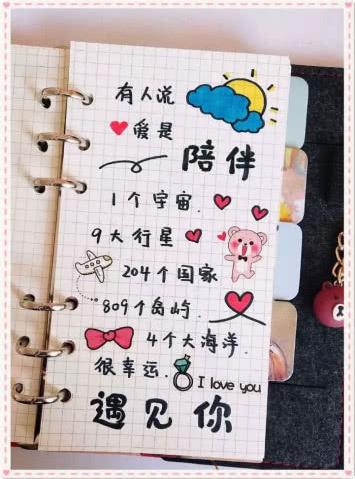 有人说
爱是
陪伴
1个宇宙.
9大行星
204个国家
809个岛屿.
4个大海洋.
很幸运.
I love you
遇见你